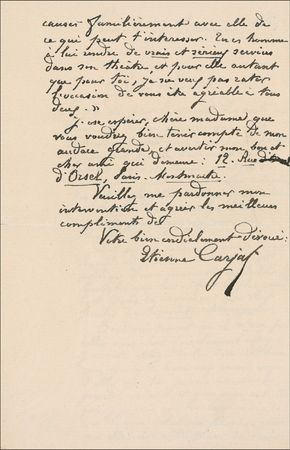 causer familièrement avec elle de
ce qui peut t'intéresser. Un homme
à lui rendre de vrais et sérieux services
dans son théâtre, et pour elle autant
que pour toi, je ne veux pas rater
l'occasion de vous être agréable à tous
deux. »
J'ose espérer, chère madame, que
vous voudrez bien tenir compte de mon
audace grande, et avertir mon bon et
cher ami qui demeure : 12. Rue
d'Orsel, Paris-Montmartre.
Veuillez me pardonner mon
intervention et agréer les meilleurs
compliments de
Votre bien cordialement dévoué :
Etienne Carjat